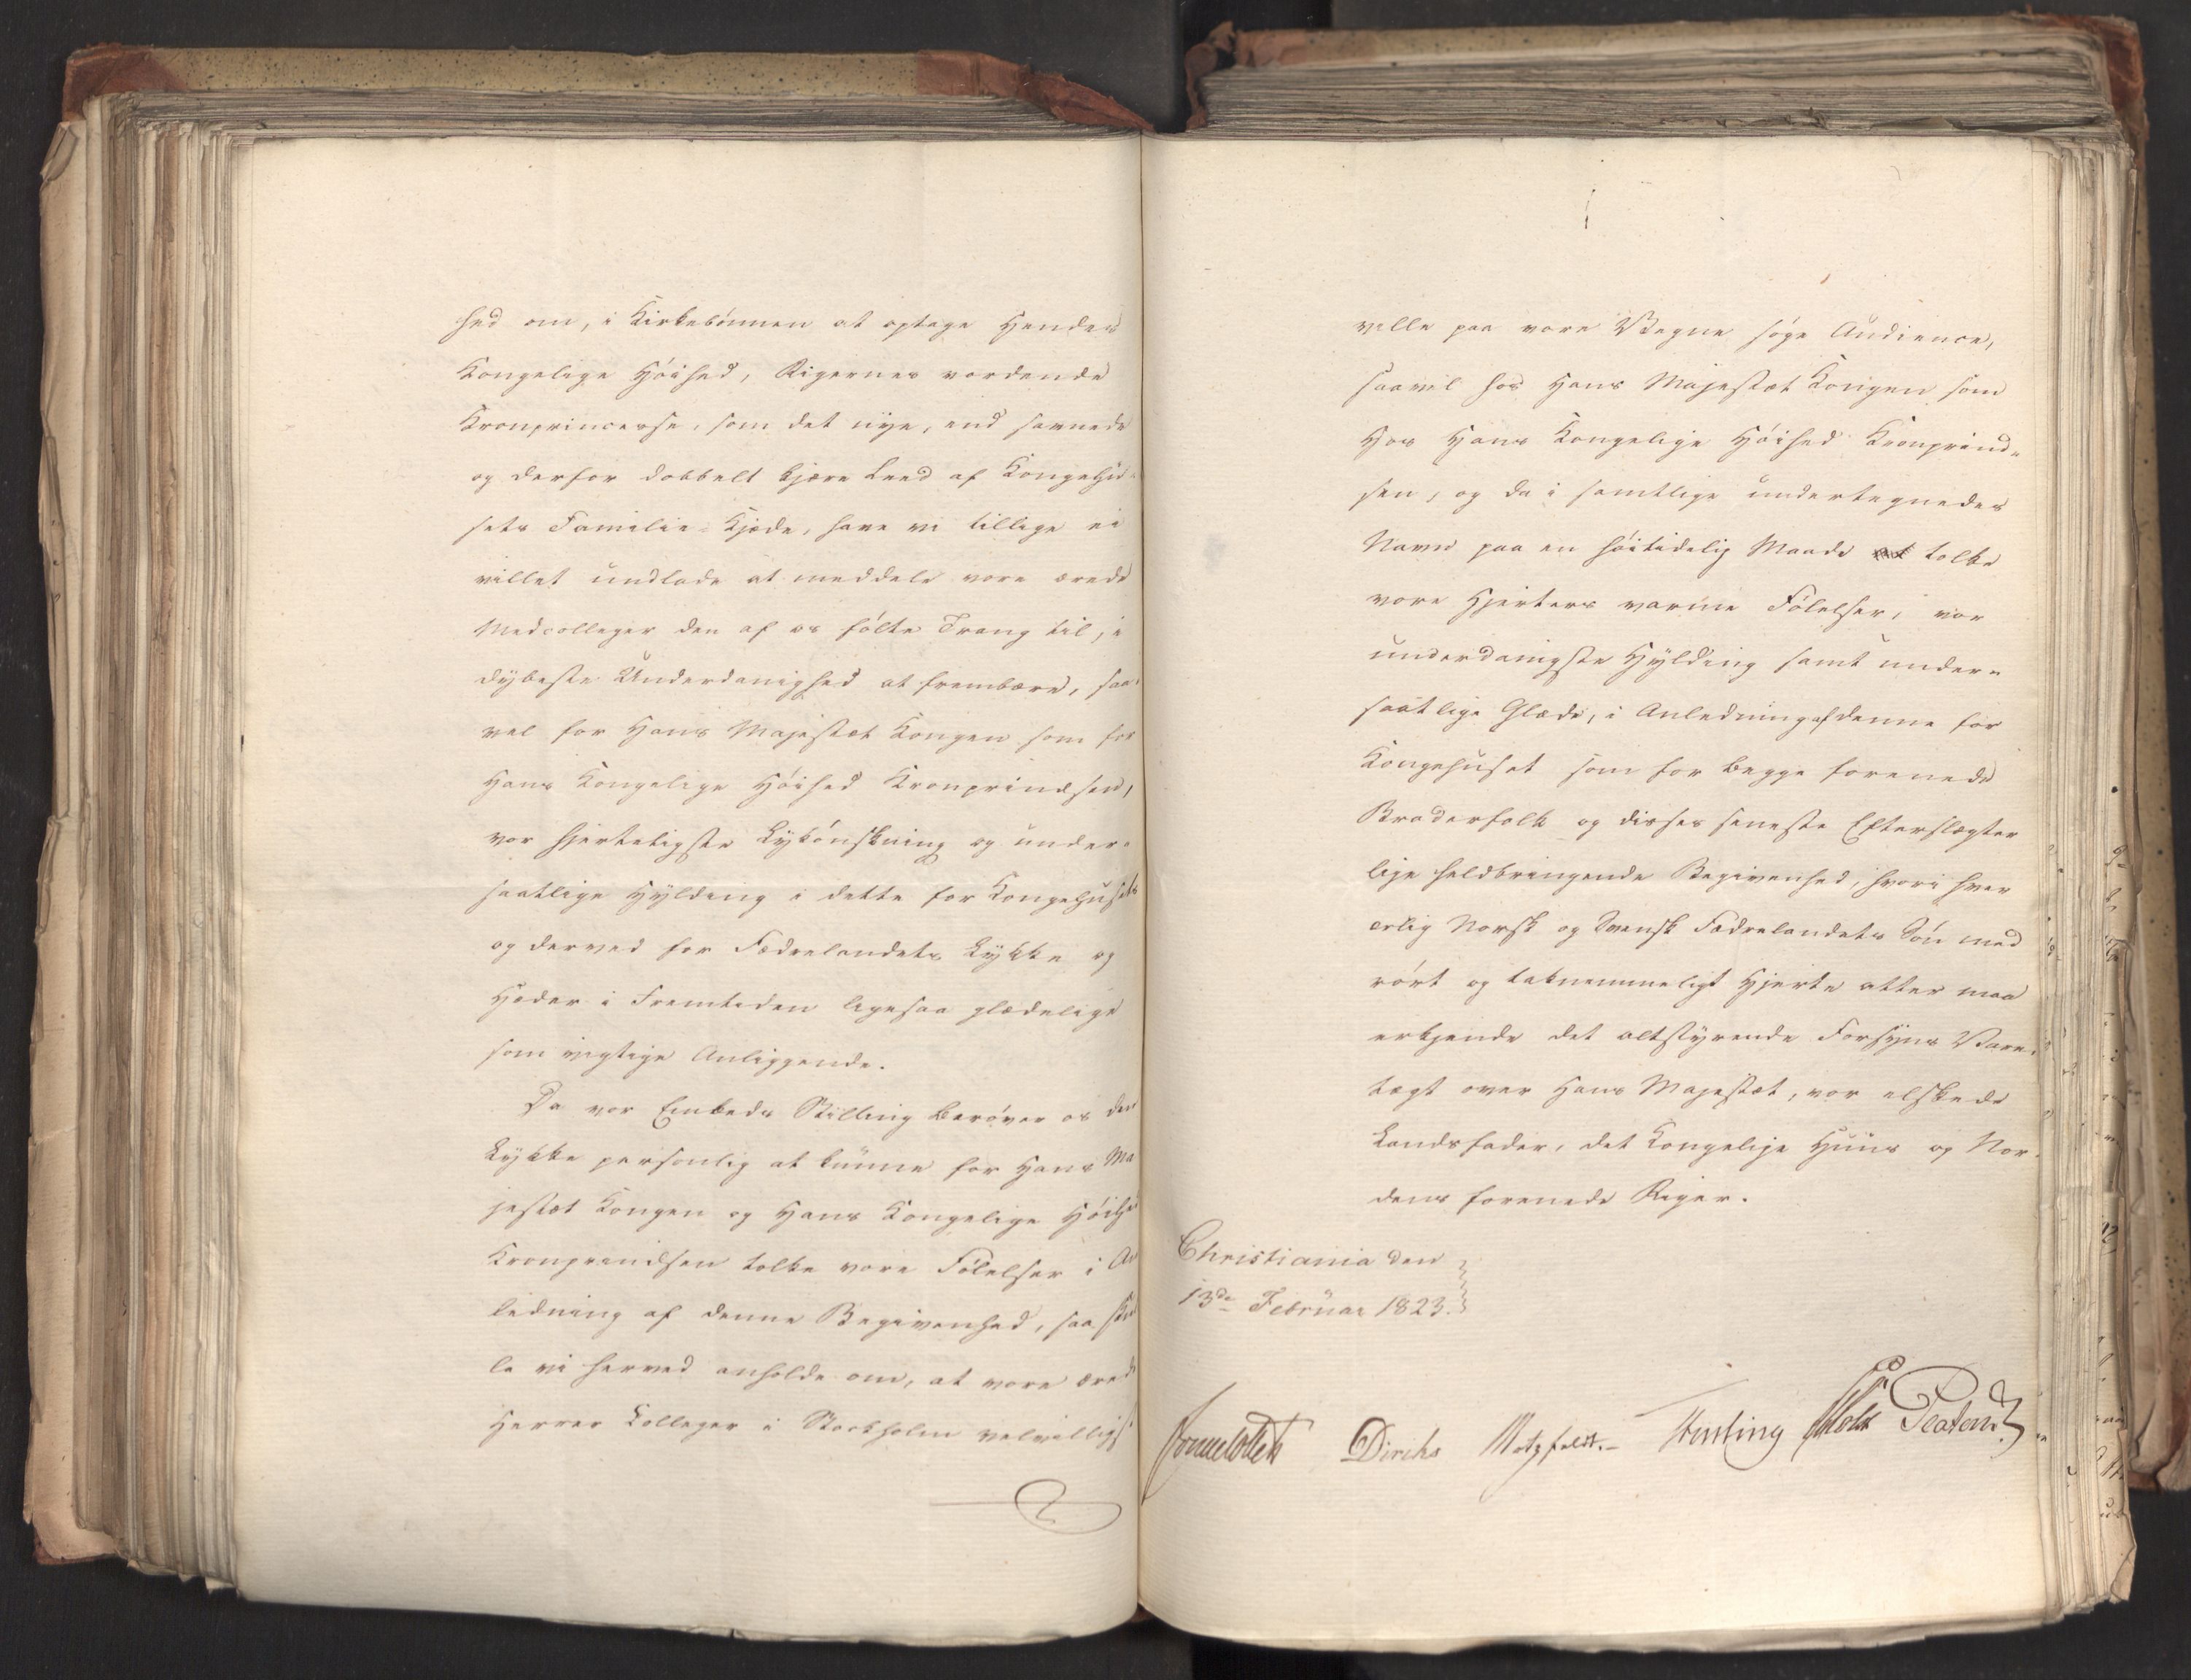 hed om, i Kirkebönnen at optage Hendes
Kongelige Höihed, Rigernes vordende
Kronprincesse, som det nye, end savnede
og derfor dobbelt kjære Leed af Kongehu-
sets Familie-Kjæde, have vi tillige ei
villet undlade at meddele vore ærede
Medcolleger den af os fölte Trang til, i
dybeste Underdanighed at frembære, saa-
vel for Hans Majestæt Kongen som for
Hans Kongelige Höihed Kronprindsen,
vor hjerteligste Lykönskning og under-
saatlige Hylding i dette for Kongehusets
og derved for Fædrelandets Lykke og
Hæder i Fremtiden ligesaa glædelige
som vigtige Anliggende.
Da vor Embeds Stilling beröver os den
Lykke personlig at kunne for Hans Ma
jestæt Kongen og Hans Kongelige Höihed
Kronprindsen tolke vore Fölelser i An
ledning af denne Begivenhed, saa skul
le vi herved anholde om, at vore ærede
Herrer Colleger i Stockholm velvilligst
ville paa vore Vegne söge Audience,
saavel hos Hans Majestæt Kongen som
hos Hans Kongelige Höihed Kronprind-
sen, og da i samtlige undertegnedes
Navn paa en höitidelig Maade tolke
vore Hjerters varme Fölelser, vor
underdanigste Hylding samt under-
saatlige Glæde, i Anledning af denne for
Kongehuset som for begge forenede
Broderfolk og disses seneste Efterslægter
lige heldbringende Begivenhed, hvori hver
ærlig Norsk og Svensk Fædrelandets Sön med
rört og taknemmeligt Hjerte atter maa
erkjende det altstyrende Forsyns Vare-
tægt over Hans Majestæt, vor elskede
Landsfader, det Kongelige Huus og Nor-
dens forenede Riger.
Christiania den
13de Februar 1823.
Sommerhielm Diriks Motzfeldt. Fasting JHolst Platou